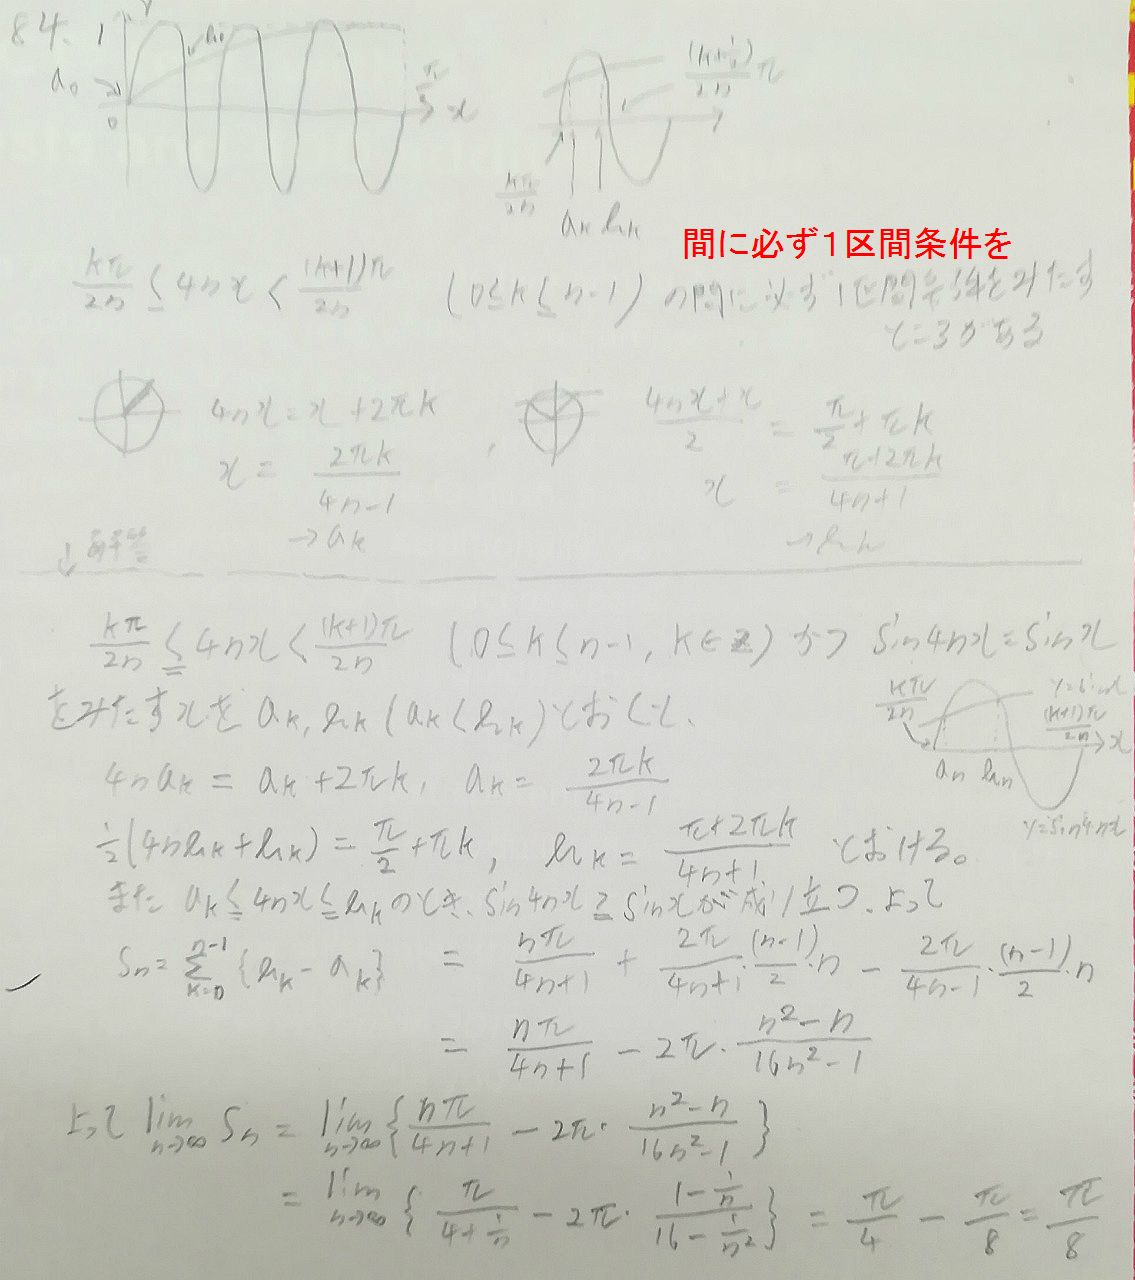 84.
1
a₀
0
π/2
x
(k+½)/2n π
kπ/2n
aₖ bₖ
間に必ず１区間条件を
kπ/2n ≦ 4nx < (k+1)π/2n (0≦k≦n-1) の間に必ず1区間条件をみたす
ところがある
4nx = x + 2πk , (4nx+x)/2 = π/2 + πk
x = 2πk/(4n-1) x = (π+2πk)/(4n+1)
→aₖ →bₖ
↓解答
kπ/2n ≦ 4nx < (k+1)π/2n (0≦k≦n-1, k∈Z) かつ sin4nx=sinx
をみたすxを aₖ, bₖ (aₖ<bₖ) とおくと、
kπ/2n y=sinx
(k+1)π/2n x
aₙ bₙ
y=sin4nx
4naₖ = aₖ+2πk, aₖ = 2πk/(4n-1)
½(4nbₖ+bₖ) = π/2 + πk, bₖ = (π+2πk)/(4n+1) とおける。
また aₖ≦4nx≦bₖ のとき、sin4nx≧sinxが成り立つ、よって
Sₙ = Σ_{k=0}^{n-1} {bₖ - aₖ} = nπ/(4n+1) + 2π/(4n+1)・(n-1)/2・n - 2π/(4n-1)・(n-1)/2・n
= nπ/(4n+1) - 2π・(n²-n)/(16n²-1)
よって lim_{n→∞} Sₙ = lim_{n→∞} {nπ/(4n+1) - 2π・(n²-n)/(16n²-1)}
= lim_{n→∞} {π/(4+1/n) - 2π・(1-1/n)/(16-1/n²)} = π/4 - π/8 = π/8